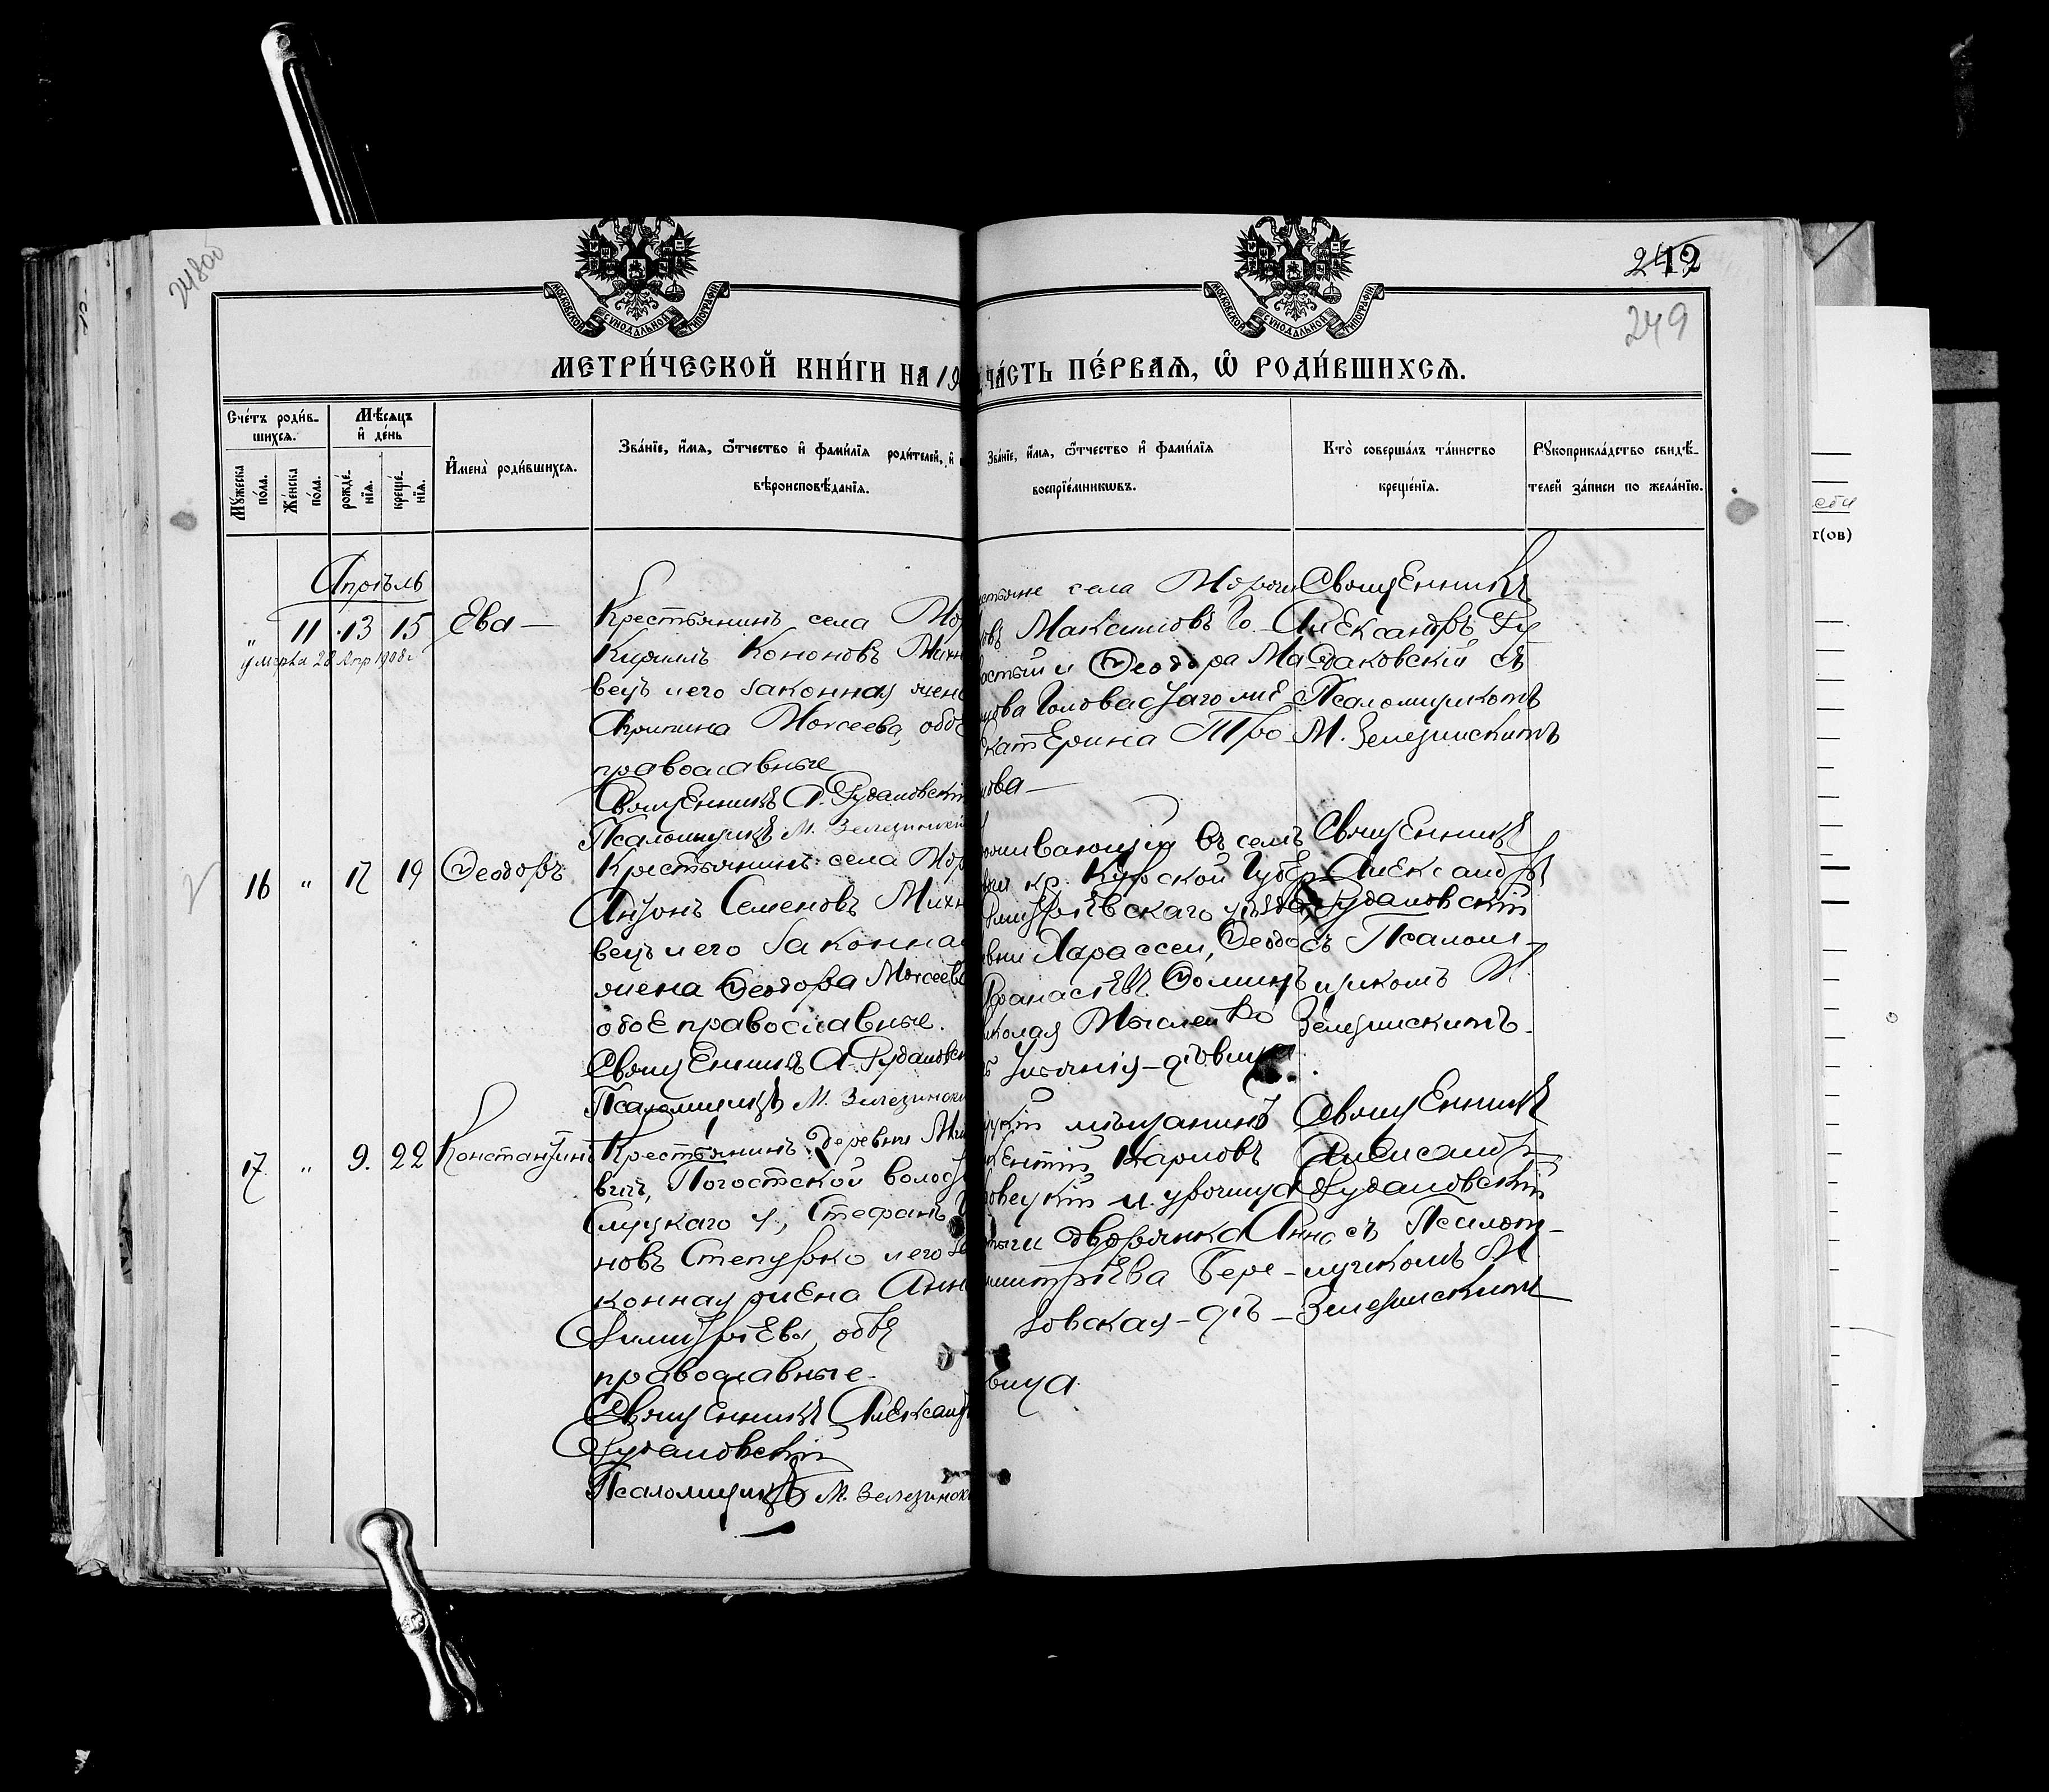 248об
242
249
МОСКОВСКОЙ СѴНОДАЛЬНОЙ ТИПОГРАФІИ
МОСКОВСКОЙ СѴНОДАЛЬНОЙ ТИПОГРАФІИ
МЕТРИ́ЧЕСКОЙ КНИ́ГИ НА 19
ЧА́СТЬ ПЕ́РВАѦ, Ѡ҆ РОДИ́ВШИХСѦ.
Сче́тъ роди́в-
шихсѧ.
Мѣ́сѧцъ
и҆ де́нь
Мꙋ́жеска по́ла.
Же́нска по́ла.
рожде́нїѧ.
креще́нїѧ.
И҆мена̀ роди́вшихсѧ.
Зва́нїе, и҆́мѧ, ѻ҆́тчество и҆ фами́лїѧ роди́телей, и҆
вѣроисповѣ́данїѧ.
Зва́нїе, и҆́мѧ, ѻ҆́тчество и҆ фами́лїѧ
воспрїе́мникѡвъ.
Кто̀ соверша́лъ та́инство
креще́нїѧ.
Рꙋкоприкла́дство свидѣ́-
телей за́писи по жела́нїю.
Апрѣль
" 11 13 15 Ева —
умерла 28 Апр 1908 г
Крестьянинъ села Мор
Кириллъ Кононовъ Михн
вецъ и его законная жена
Агрипина Моисеева, обое
православные
Священникъ А. Рудаковскій
Псаломщикъ М. Зелезинскій
стьяне села Мороч
овъ Максимовъ Го-
и Ѳеодора Ма-
Головастаго
катерина Тро
мова —
Священникъ
Александръ Ру
даковскій съ
Псаломщикомъ
М. Зелезинскимъ
16 " 17 19 Ѳеодоръ
Крестьянинъ села Мор
Антонъ Семеновъ Михн
вецъ и его законная
жена Ѳеодора Моисеева
обое православные.
Священникъ А. Рудаковск
Псаломщикъ М. Зелезинск
живающій въ селѣ
кр. Курской Губер
Дмитріевскаго уѣзда,
вни Харассеи, Ѳеодо
Афанасіевъ
колая
дѣвица.
Священникъ
Александръ
Рудаковскій
съ Псалом-
щикомъ М.
Зелезинскимъ.
17 " 9. 22 Константинъ
Крестьянинъ деревни
вичъ, Погостской волос
Слуцкаго у., Стефанъ
новъ Степурко и его за
конная жена Анна
Димитріева, обѣ
православные.
Священникъ Александ
Рудаковскій
Псаломщикъ М. Зелезинск
цкій мѣщанинъ
кентій Карповъ
и урочища
дворянка Анна
митріева Бере-
зовская — дѣ-
вица
Священникъ
Александръ
Рудаковскій
съ Псалом-
щикомъ М
Зелезинскимъ
т(ов)